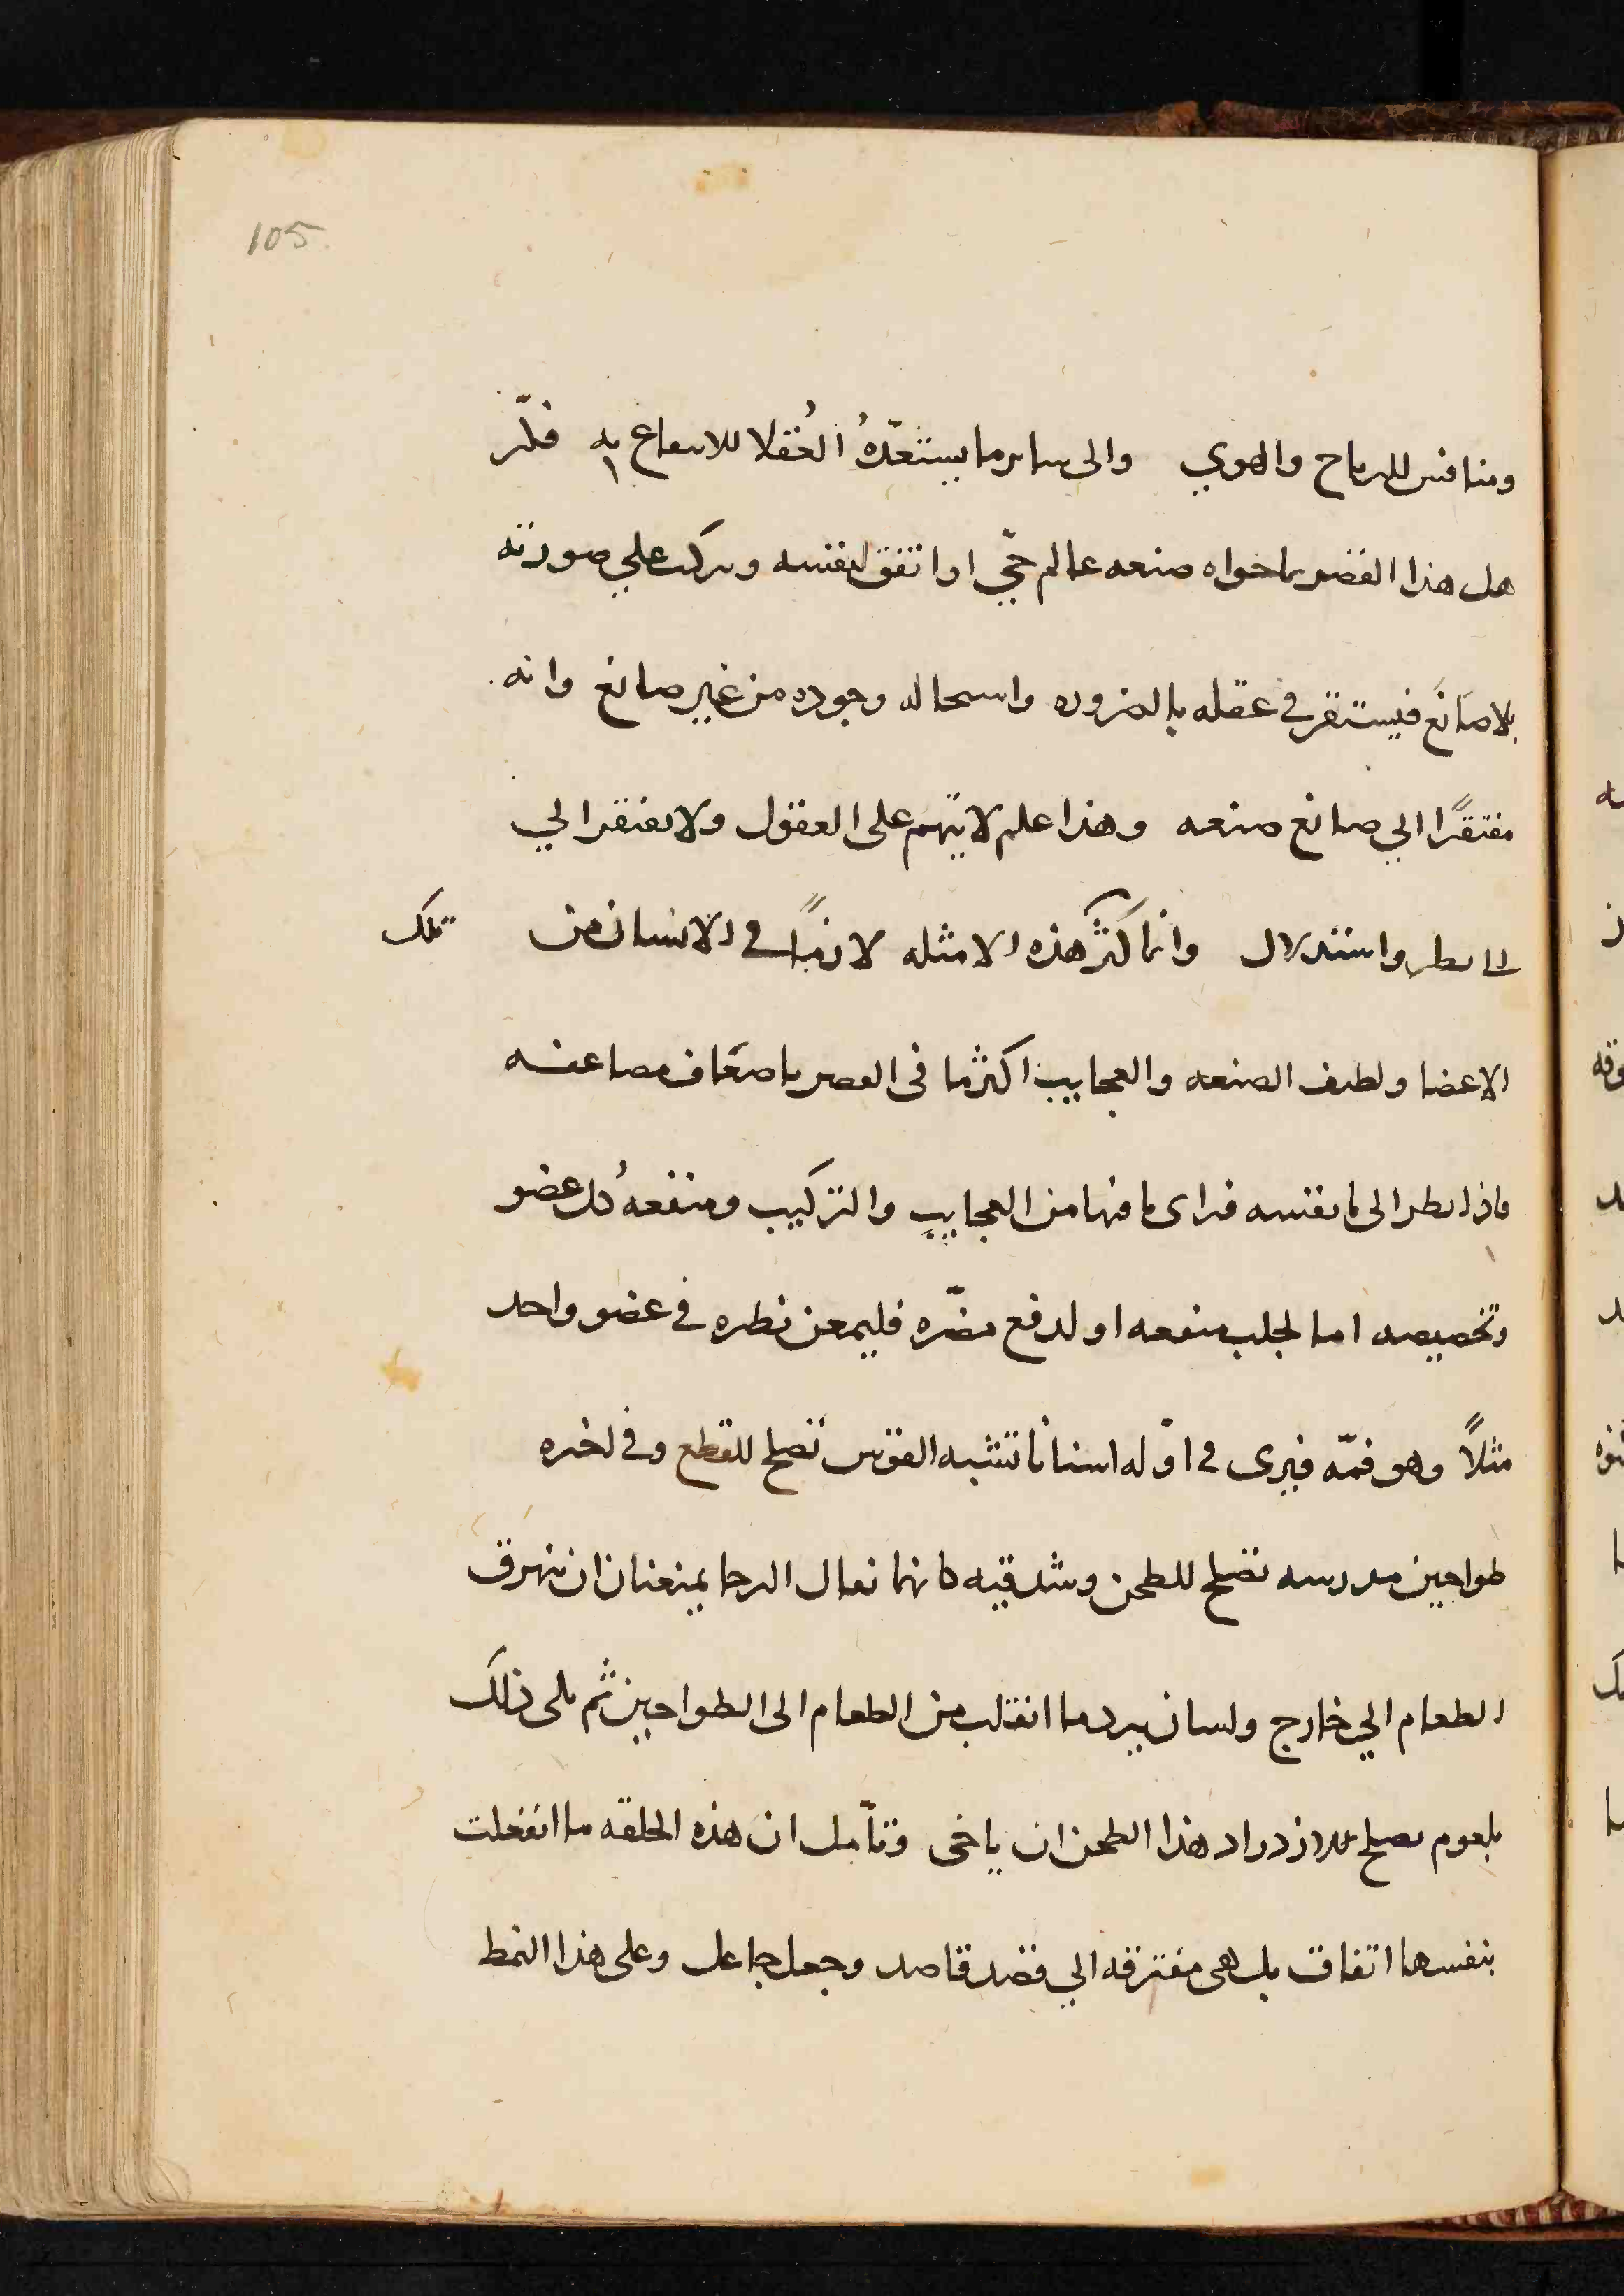 105
ومنافس للرياح والهوي والى ساير ما يستعدّهُ العُقلا للانتفاع به فكّر
هل هذا القصر بما حواه صنعه عالم حيّ او اتفق لنفسه وتركب علي صورته
بلا صَانَع فيستقر في عقله بالضروره واستحاله وجوده من غير صانع وانه
مفتقرًا الي صانع صنعه وهذا علم لا يتهم على العقول ولا يفتقر الي
الى نظر واستدلال وانما كثر هذه الامثله لان في الانسان من تلك
الاعضا ولطيف الصنعه والعجايب اكثر مما في القصر باضعاف مضاعفه
فاذا نظر الى نفسه فراى ما فيها من العجايب والتركيب ومنفعهُ كل عضو
وتخصيصه اما لجلب منفعه او لدفع مضّره فليمعن نظره في عضو واحد
مثلاً وهو فمّه فيرى في اوّله اسنانا تشبه الفوس تصلح للقطع وفي اخره
طواحين مدرسه تصلح للطحن وشدقيه كانهما نعال الرحا يمنعنان ان يتهرق
الطعام الي خارج ولسان يرد ما انقلب من الطعام الى الطواحين ثم يلى ذلك
بلعوم يصلح للازدراد هذا الطحن ان ياخى وتأمل ان هذه الخلقه ما انفعلت
بنفسها اتفاق بل هى مفترقه الي قصد قاصد وجعل جاعل وعلى هذا النمط